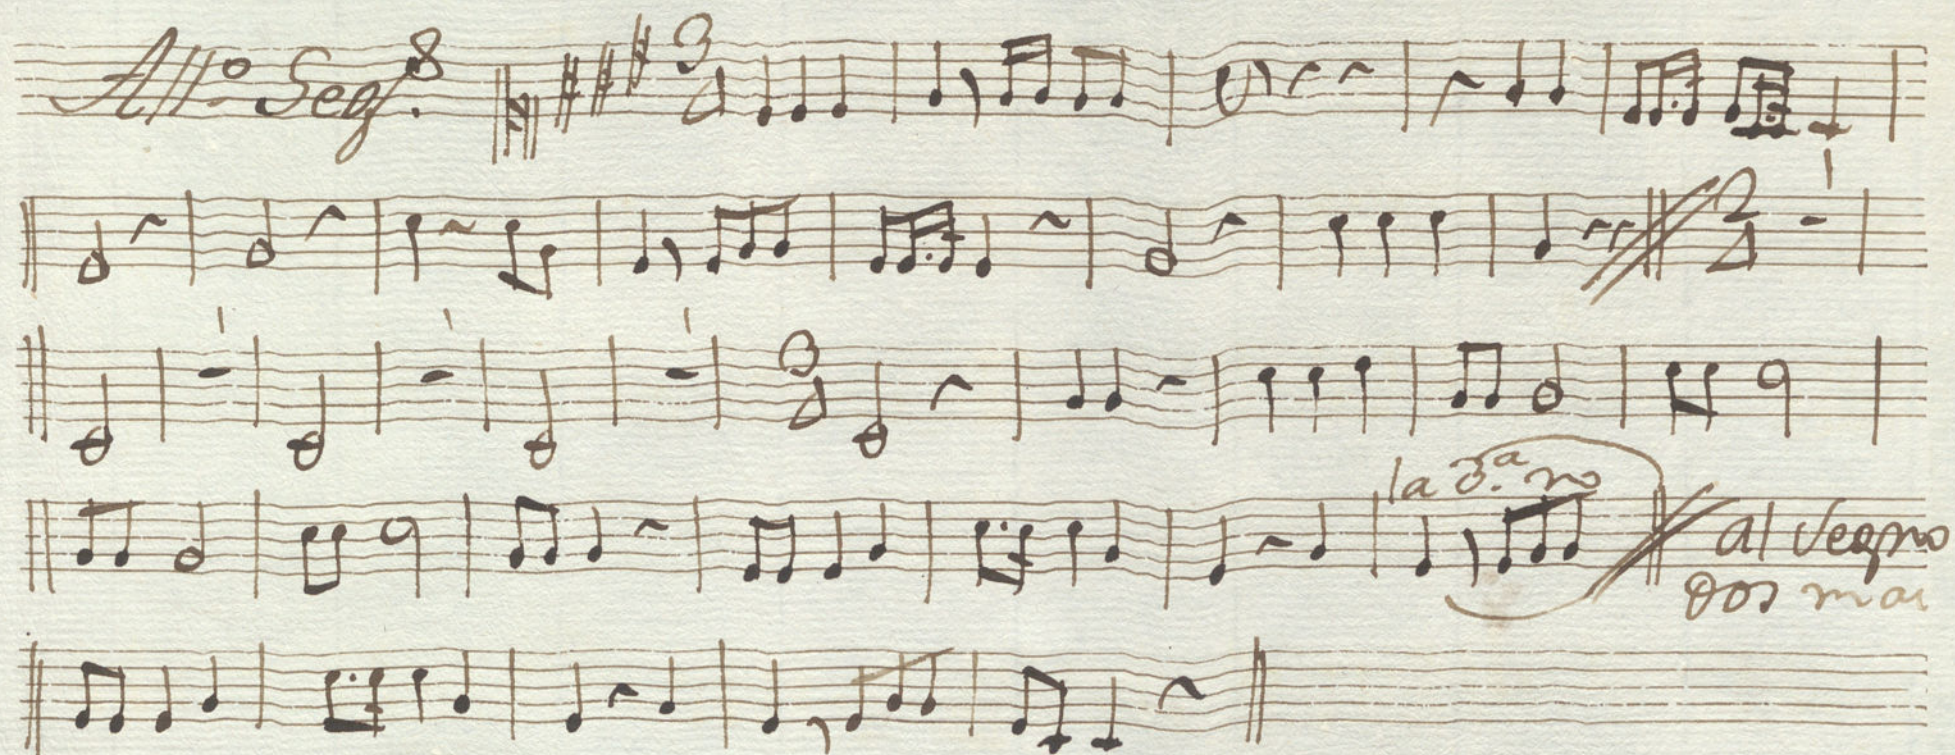 All.º Seg.
3
4
2
4
3
4
la 3.ª no
al Segno
dos mas